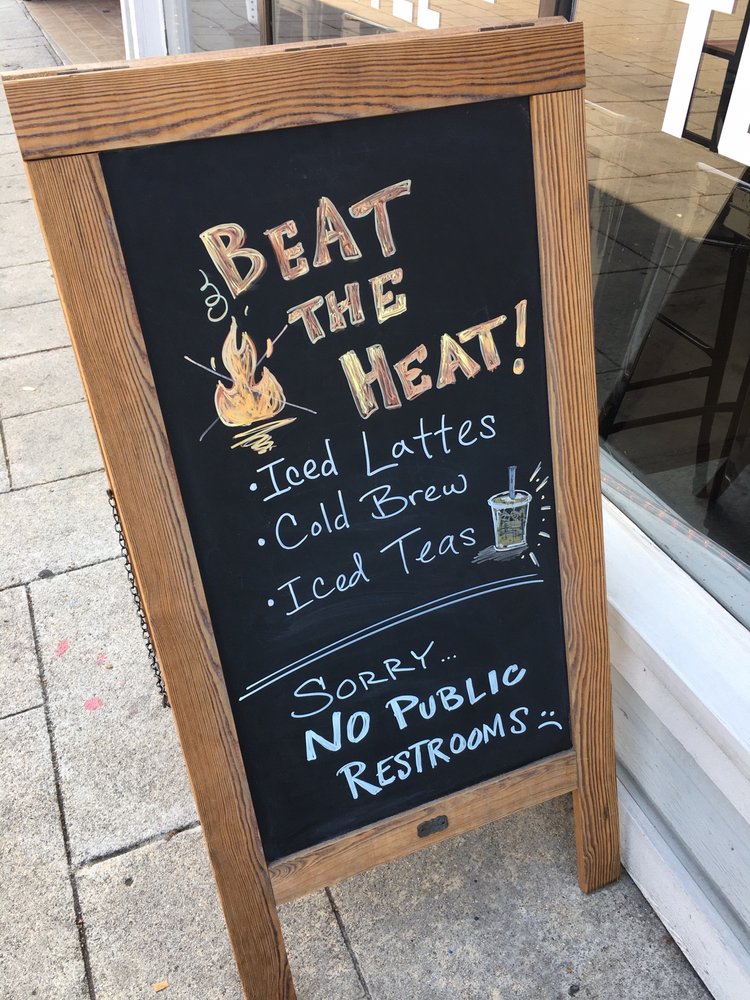 BEAT
THE
HEAT!
· Iced Lattes
· Cold Brew
· Iced Teas
SORRY...
NO PUBLIC
RESTROOMS :(